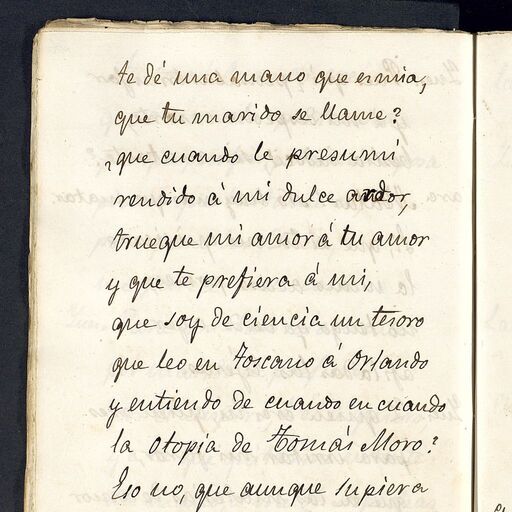 te dé una mano que es mia,
que tu marido se llame?
¿que cuando le presumí
rendido á mi dulce ardor,
trueque mi amor á tu amor
y que te prefiera á mi,
que soy de ciencia un tesoro
que leo en Toscano á Orlando
y entiendo de cuando en cuando
la otopia de Tomás Moro?
Eso no, que aunque supiera